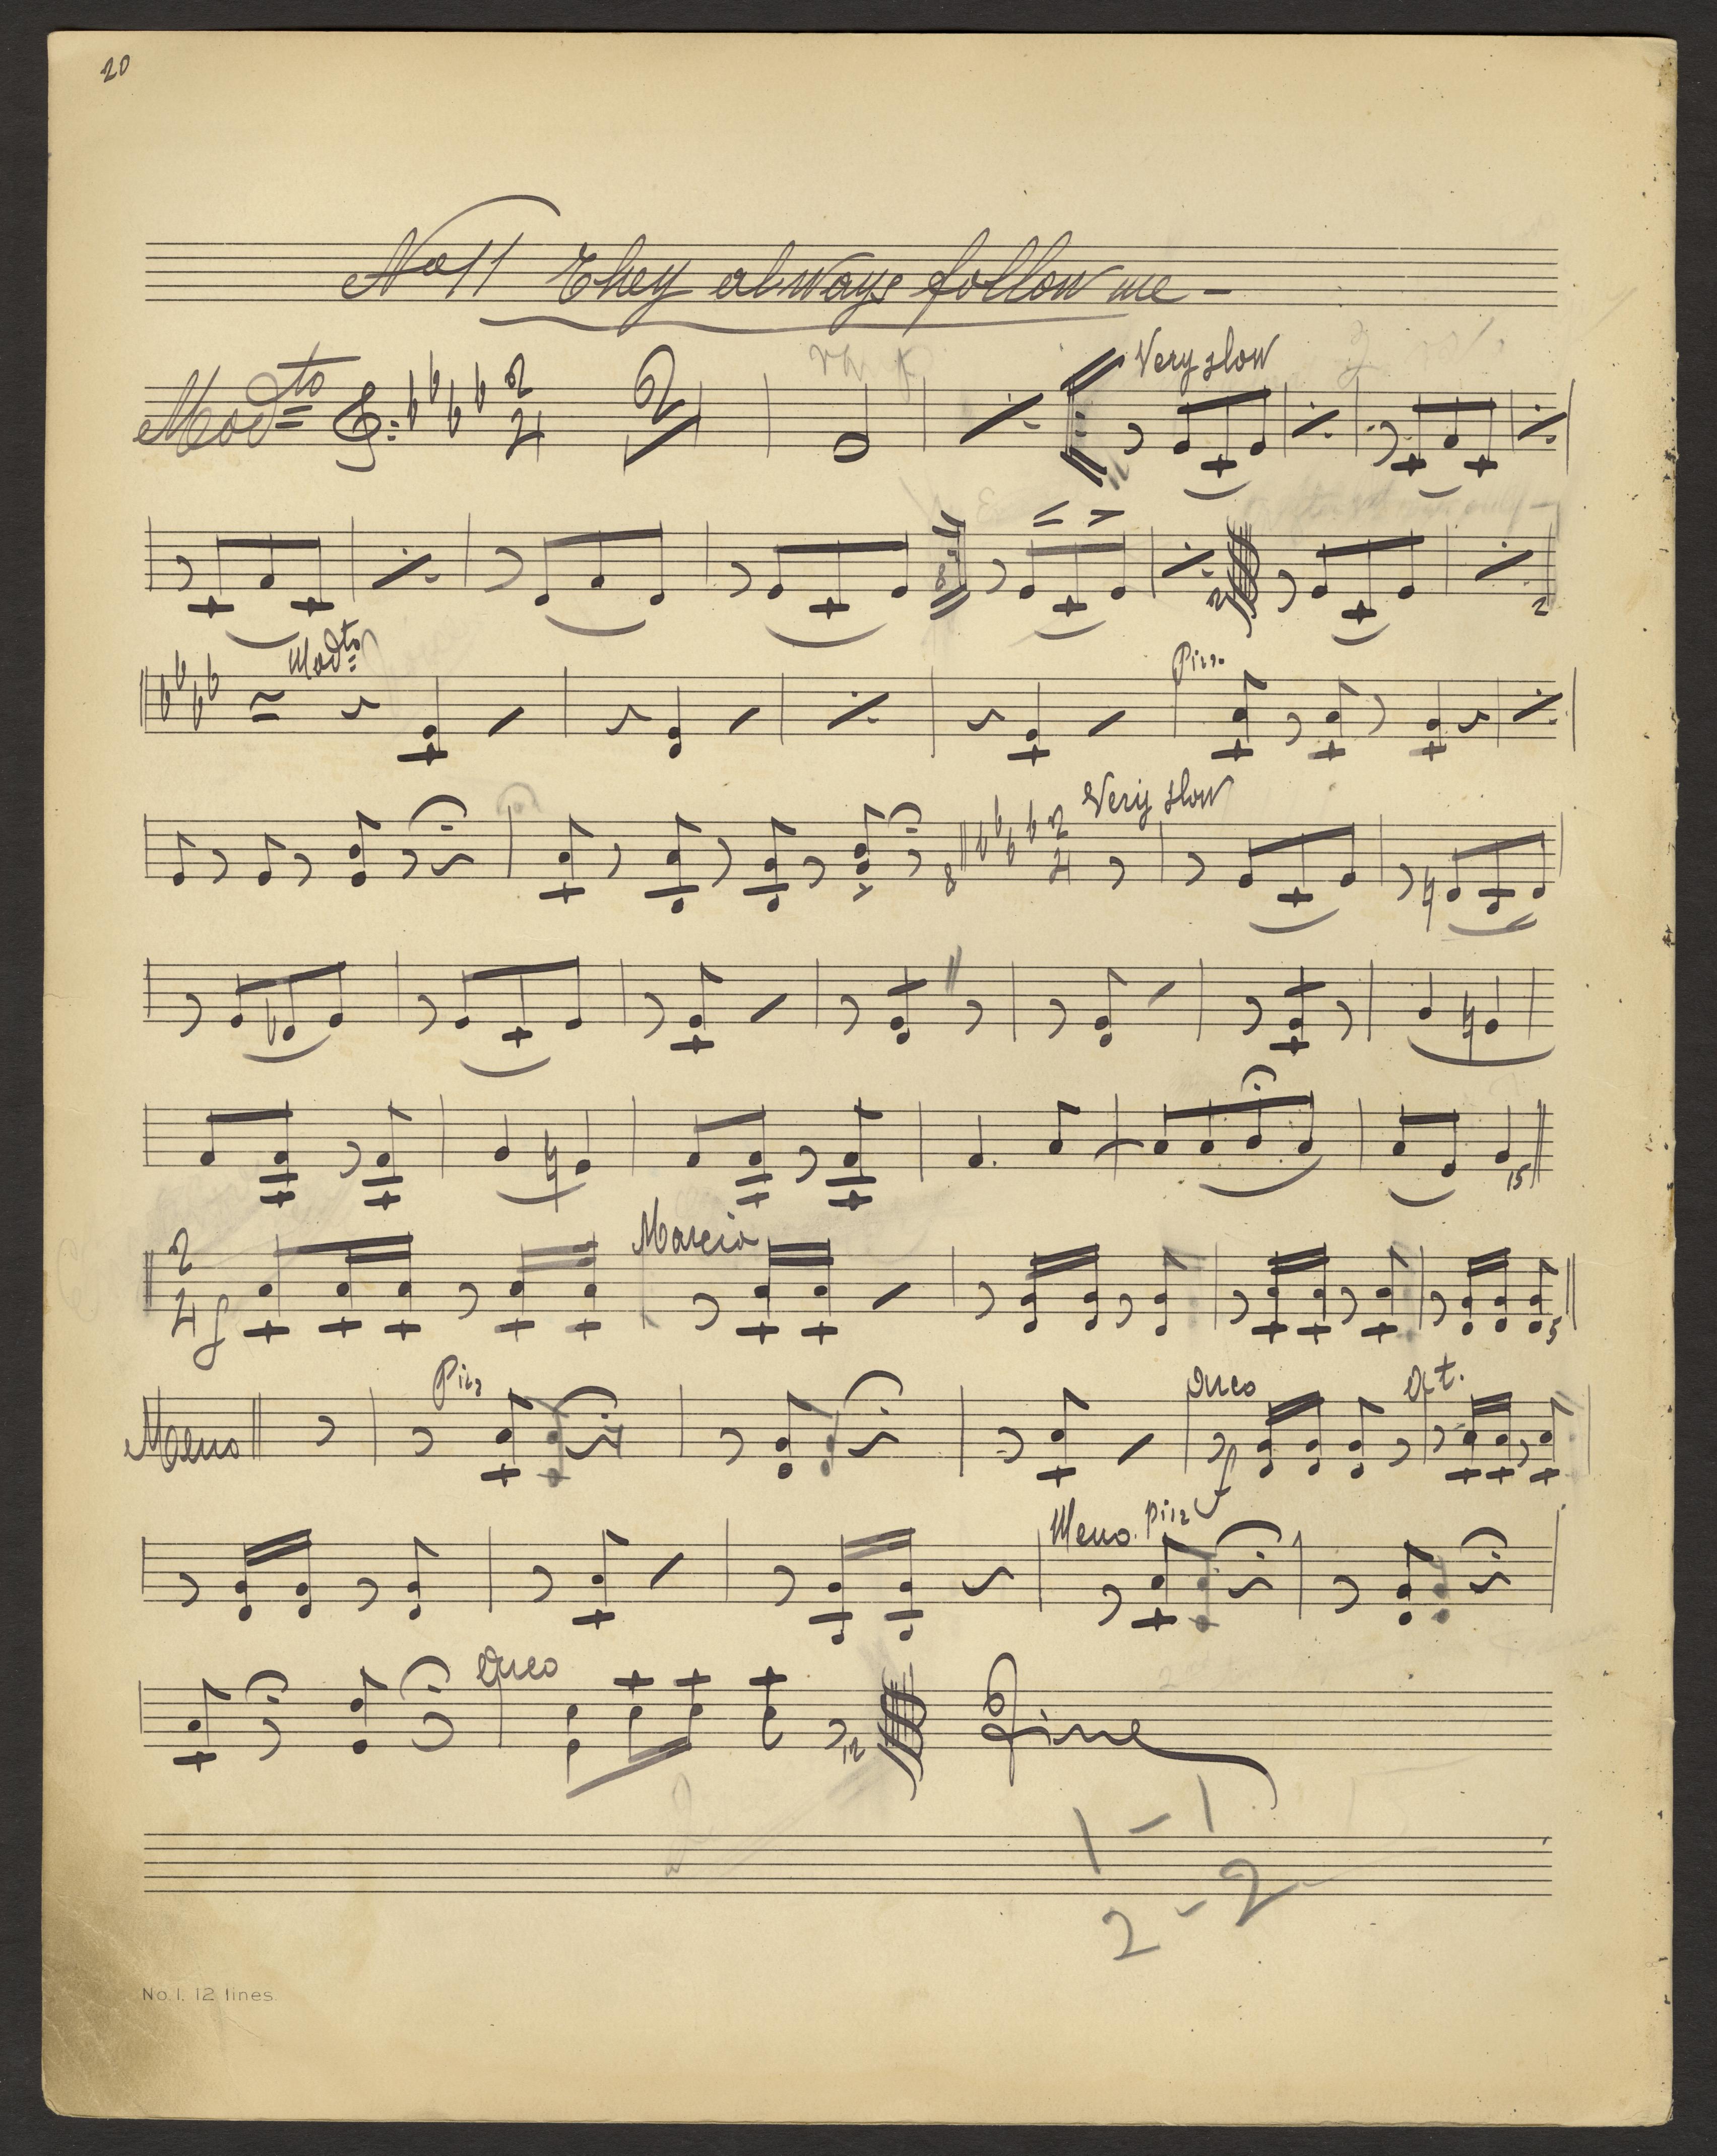 20
No 11 They always follow me -
Modto 2 4 2 Very slow
2
Modto Pizz.
8 2 4 Very slow
15
2 4 f Marcia 5
Meno Pizz Arco f At.
Meno. Pizz
Arco 12 Fine
1 - 1
2 - 2
No. 1. 12 lines.